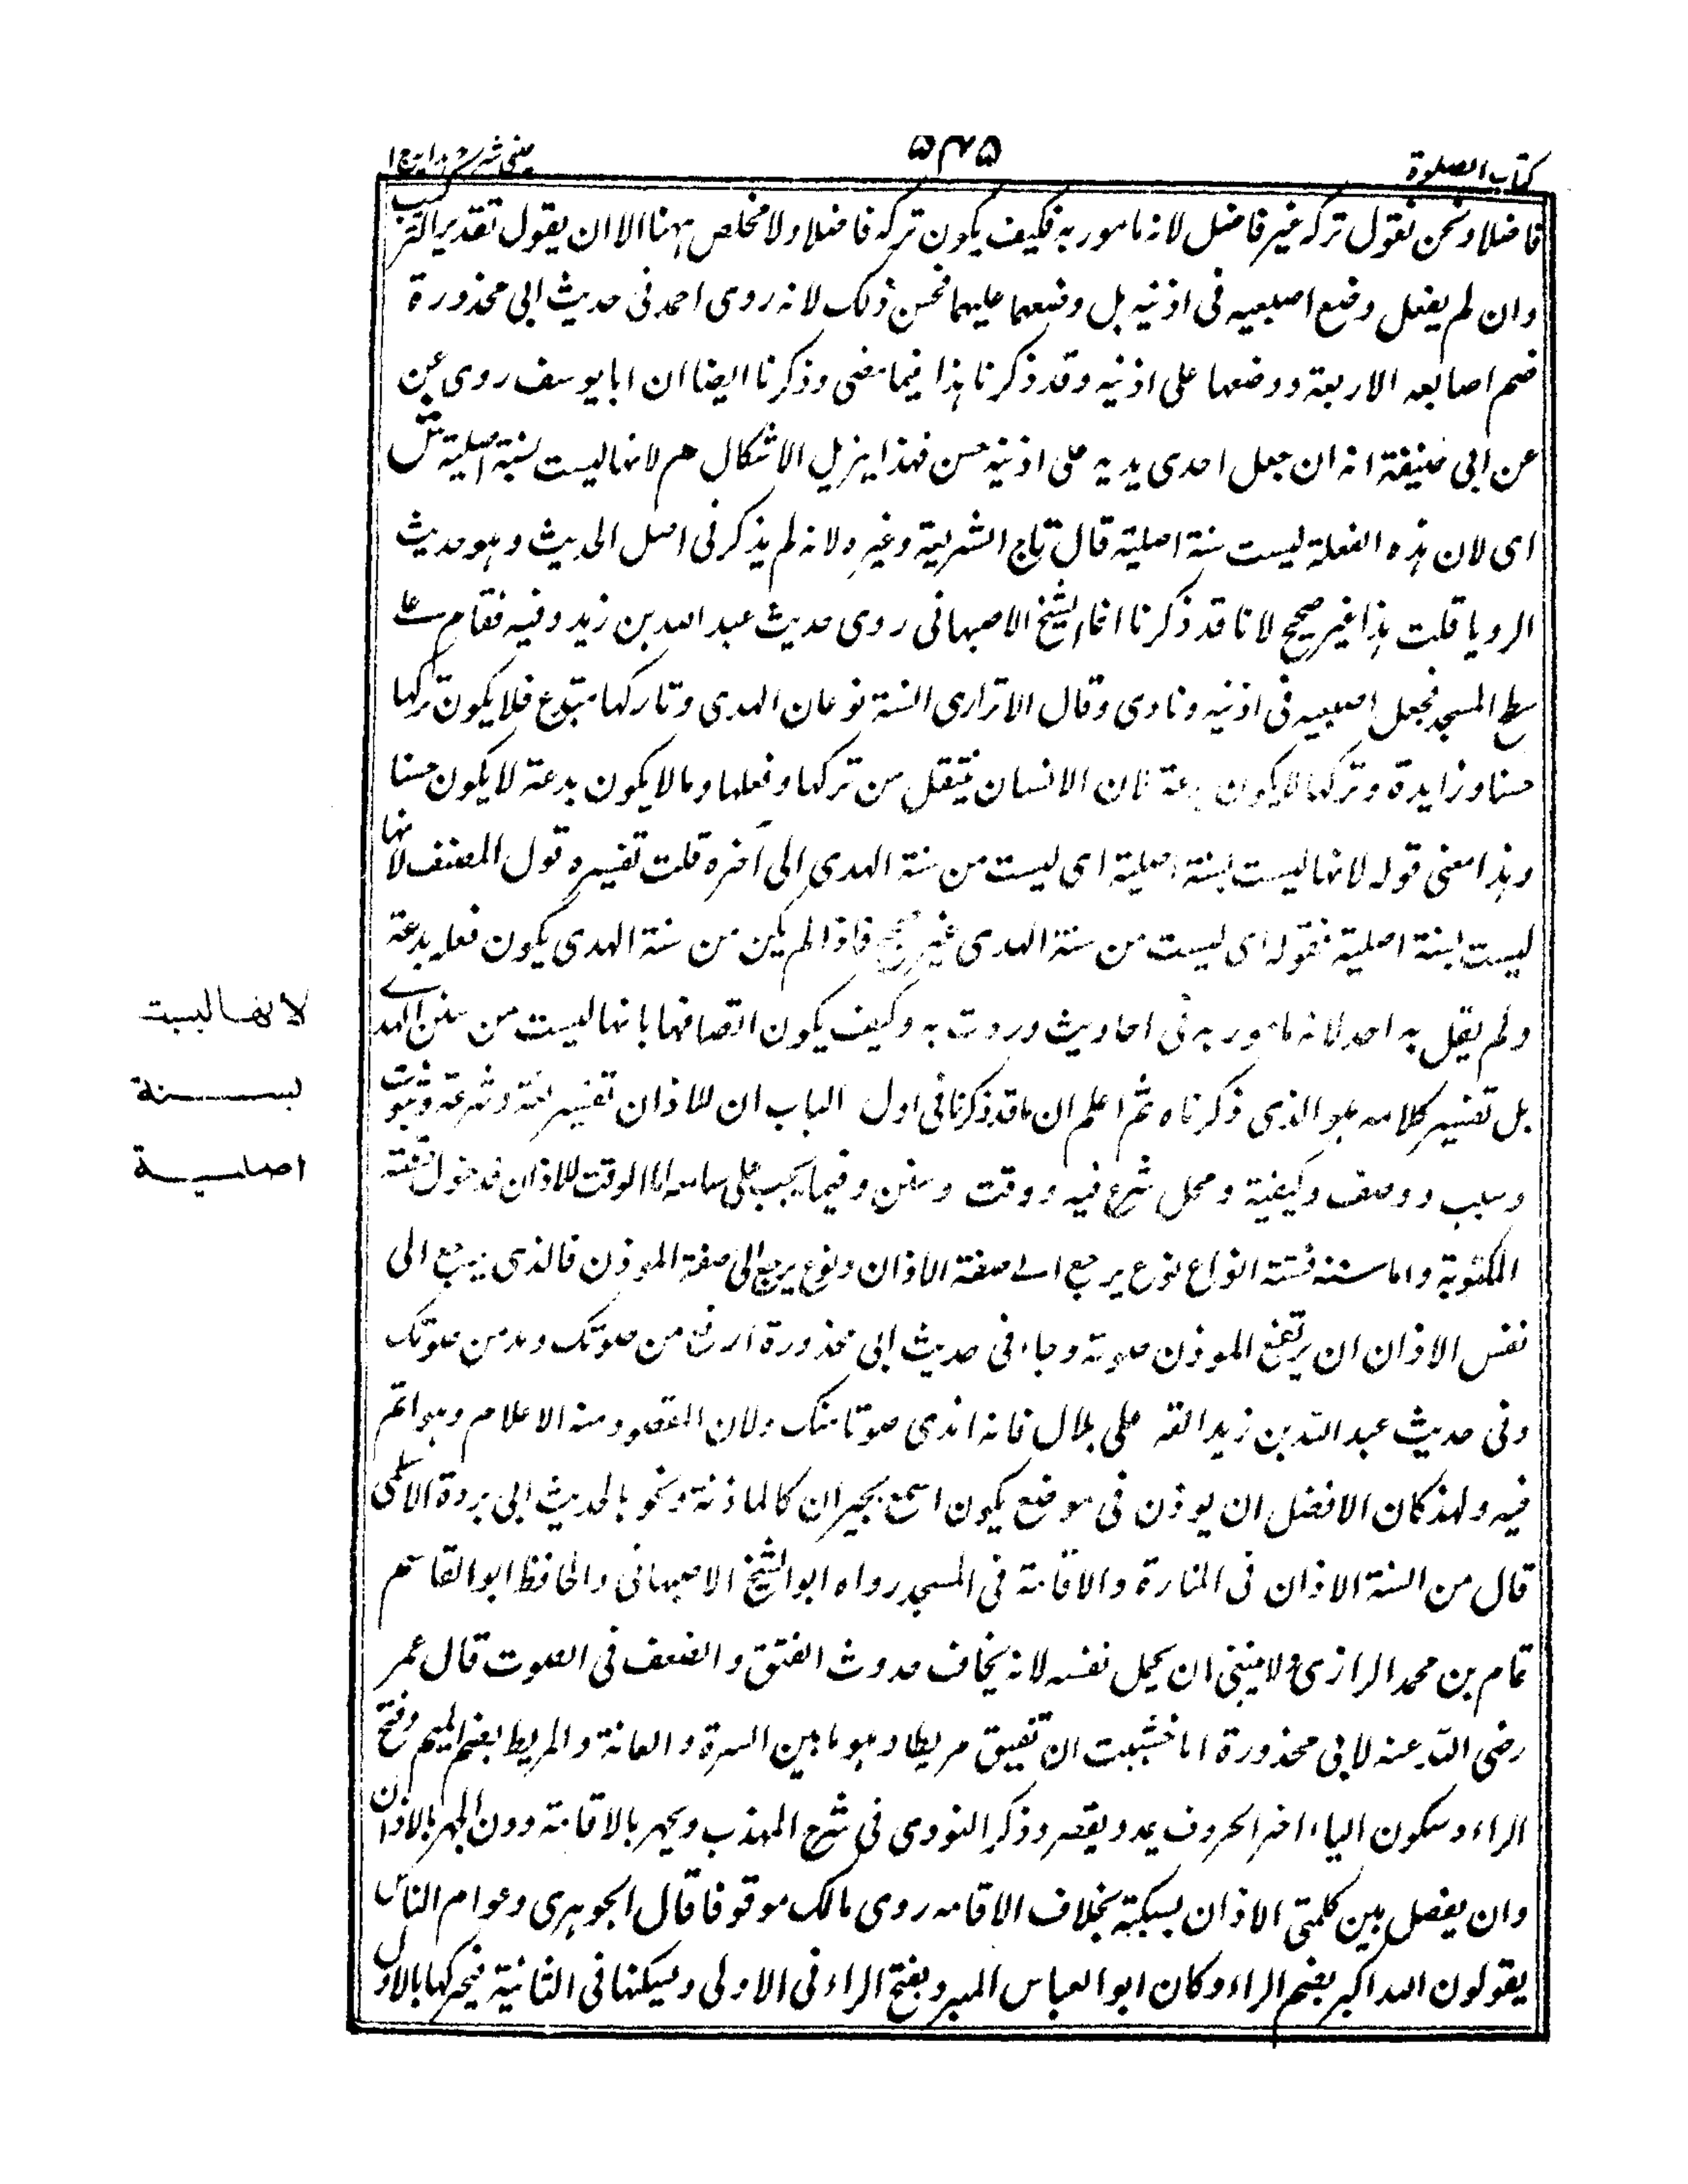 كتاب الصلوة
۵۴۵
عينى شرح هدايه ج ا
فاضلا ونحن نقول تركه غير فاضل لانه مامور به فكيف يكون تركه فاضلا ولا مخلص ههنا الا ان يقول تقدير التركيب
وان لم يفعل وضع اصبعيه فى اذنيه بل وضعهما عليهما فحسن ذلك لانه روى احمد فى حديث ابى محذورة
ضم اصابعه الاربعة ووضعها على اذنيه وقد ذكرنا هذا فيما مضى وذكرنا ايضا ان ابا يوسف روى عن
عن ابى حنيفة انه ان جعل احدى يديه على اذنيه حسن فهذا يزيل الاشكال هم لانها ليست بسنة اصلية ش
اى لان هذه الفعلة ليست سنة اصلية قال تاج الشريعة وغيره ولانه لم يذكر فى اصل الحديث وهو حديث
الرويا قلت هذا غير صحيح لانا قد ذكرنا الشيخ الاصبهانى روى حديث عبد الله بن زيد وفيه فقام على
سطح المسجد فجعل اصبعيه فى اذنيه ونادى وقال الاترارى السنة نوعان الهدى وتاركها مبتدع فلا يكون تركها
حسنا وزايدة وتركها لا يكون بدعة لان الانسان ينتقل من تركها وفعلها وما لا يكون بدعة لا يكون حسنا
وهذا معنى قوله لانها ليست بسنة اصلية اى ليست من سنة الهدى الى آخره قلت تفسيره قول المصنف لانها
ليست بسنة اصلية فقوله اى ليست من سنة الهدى غير صحيح فاذا لم يكن من سنة الهدى يكون فعله بدعة
ولم يقل به احد لانه مامور به فى احاديث وردت به وكيف يكون اتصافها بانها ليست من سنن الهدى
بل تفسير كلامه هو الذى ذكرناه ثم اعلم ان ما قد ذكرنا فى اول الباب ان للاذان تفسير لغة وشرعة وثبوت
وسبب ووصف وكيفية ومحل شرع فيه ووقت وسنن وفيما يجب على سامعه اما الوقت للاذان فدخول
المكتوبة واما سننه فستة انواع نوع يرجع الى صفة الاذان ونوع يرجع الى صفة الموذن فالذى يرجع الى
نفس الاذان ان يرفع الموذن صوته وجاء فى حديث ابى محذورة ارفع من صوتك ومد من صوتك
وفى حديث عبد الله بن زيد القه على بلال فانه اندى صوتا منك ولان المقصود منه الاعلام وهو اتم
فيه ولهذ كان الافضل ان يوذن فى موضع يكون اسمع بجيران كالماذنة ونحو بالحديث ابى بردة الاسلمى
قال من السنة الاذان فى المنارة والاقامة فى المسجد رواه ابو الشيخ الاصبهانى والحافظ ابو القاسم
تمام بن محمد الرازى ولا ينبغى ان يحمل نفسه لانه يخاف حدوث الفتق والضعف فى الصوت قال عمر
رضى الله عنه لابى محذورة اما خشيت ان تفيق مريطا وهو ما بين السرة والعانة والمريط بضم الميم وفتح
الراء وسكون الياء اخر الحروف يمد ويقصر وذكر النووى فى شرح المهذب ويجهر بالاقامة دون الجهر بالاذان
وان يفصل بين كلمتى الاذان بسكتة بخلاف الاقامه روى مالك موقوفا قال الجوهرى وعوام الناس
يقولون الله اكبر بضم الراء وكان ابو العباس المبرد بفتح الراء فى الاولى ويسكنها فى الثانية فيحركها بالاول
لانها ليست
بسنة
اصلية